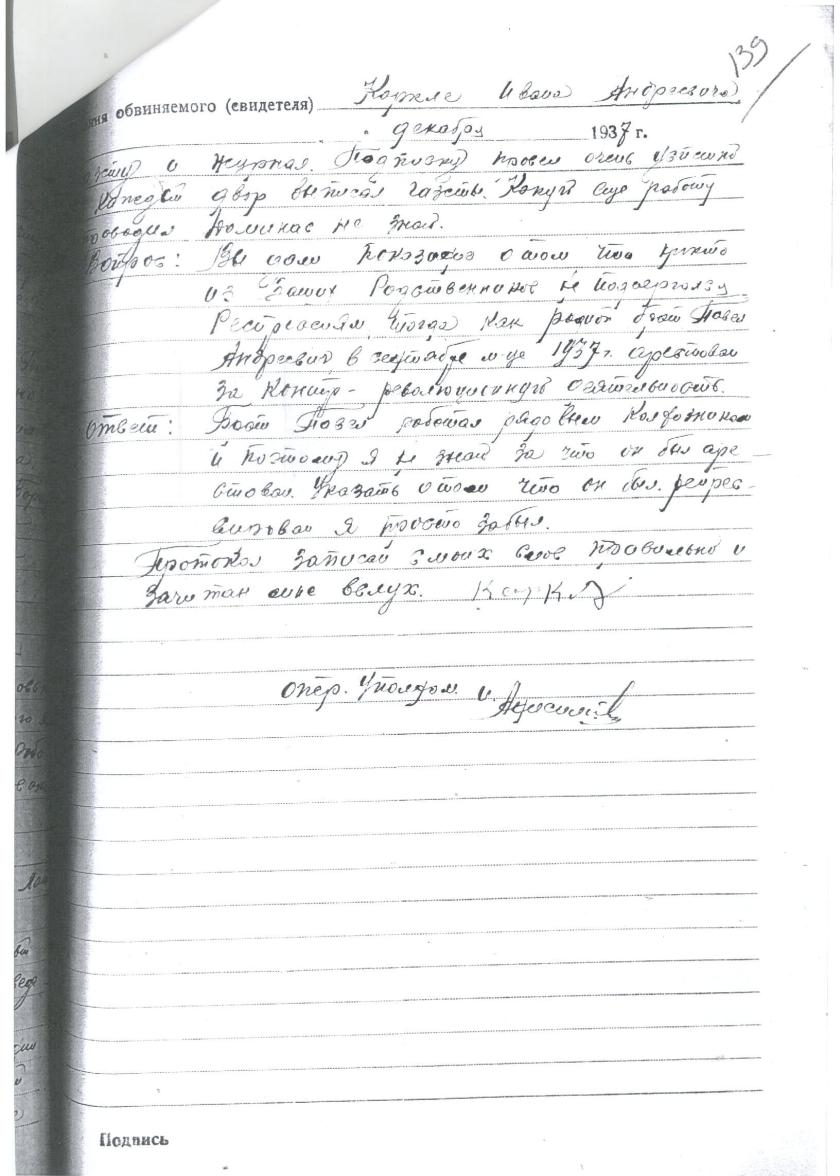 139
ния обвиняемого (свидетеля) Каркле Ивана Андреевича
декабря 1937 г.
и журнал. Подписку провел очень
Каждый двор выписал газеты. Какую еще работу
проводил не знаю.
Вопрос: Вы дали показания о том что никто
из Ваших Родственников не подвергался
Репрессиям, тогда как родной брат Павел
Андреевич, в сентябре м-це 1937 г. арестован
за контр-революционную деятельность.
Ответ: Брат Павел работал рядовым колхозником
и поэтому я не знаю за что он был аре-
стован. Указать о том что он был репрес-
сирован я просто забыл.
Протокол записан с моих слов правильно и
зачитан мне вслух.
опер. Уполном.
Подпись